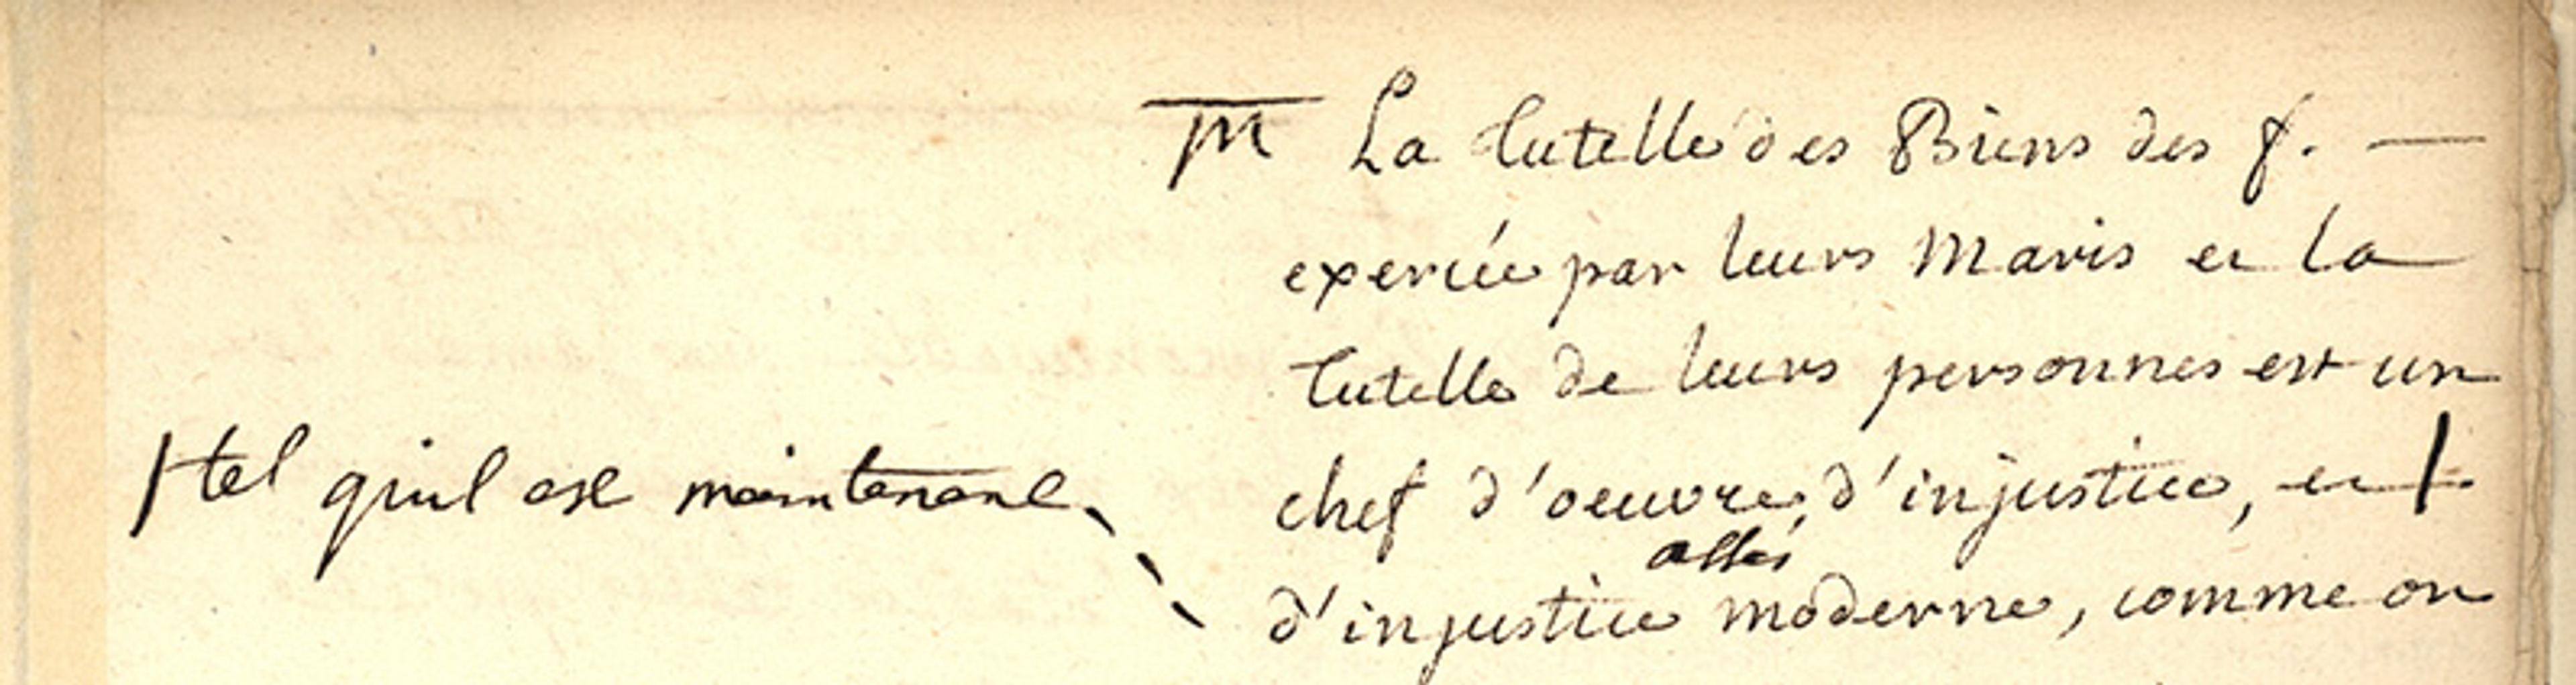 M La tutelle des Biens des f. —
exercée par leurs Maris et la
tutelle de leurs personnes est un
tel qu'il est maintenant
chef d'oeuvre d'injustice, et
assés
d'injustice moderne, comme on